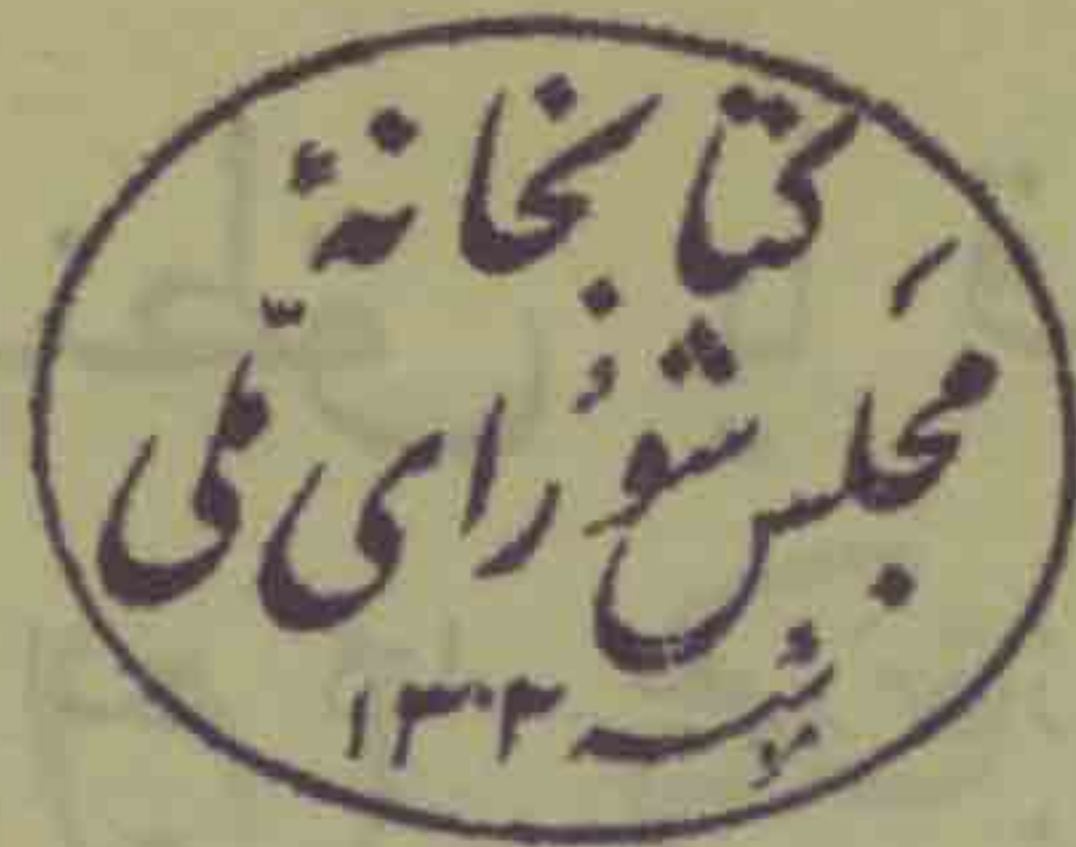 کتابخانهٔ
مجلس شُورای ملّی
سنه ۱۳۰۲